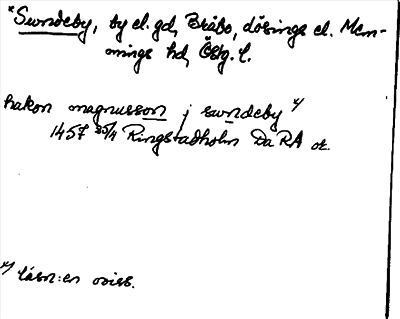 *Swndeby, by el. gd, Bråbo, Lösings el. Mem-
mings hd, Östg. l.
hakon magnusson j swndeby x)
1457 25/4 Ringstadholm Da RA or.
x) läsn:en oviss.